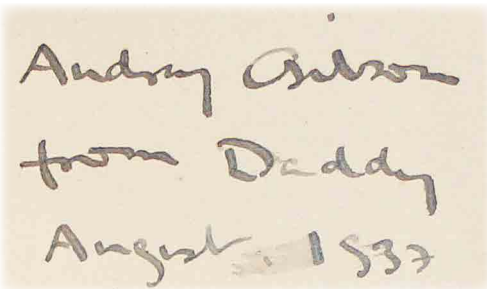 Audrey Gibson
from Daddy
August. 1937